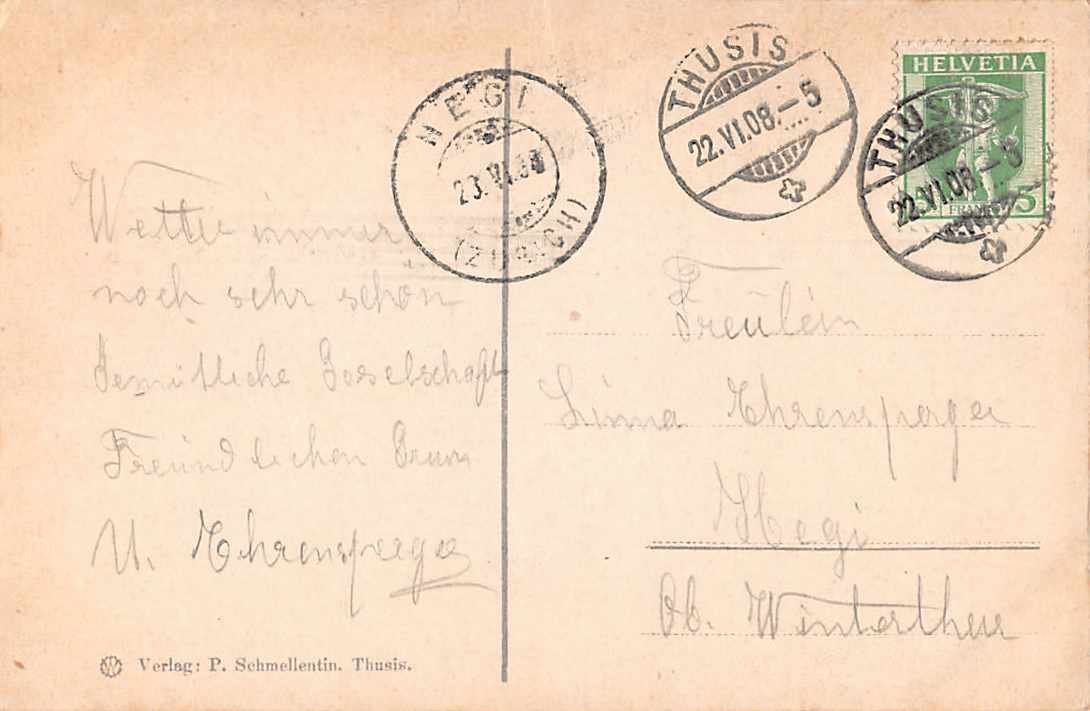 Wetter immer
noch sehr schön
Gemütliche Geselschaft
Freundlichen Gruss
U. Ehrensperger
Verlag: P. Schmellentin. Thusis.
HEGI
23.VI.08
(ZÜRICH)
THUSIS
22.VI.08.-5
HELVETIA
THUSIS
22.VI.08.-5
FRANCO 5
Freulein
Linna Ehrensperger
Hegi
Ob. Winterthur